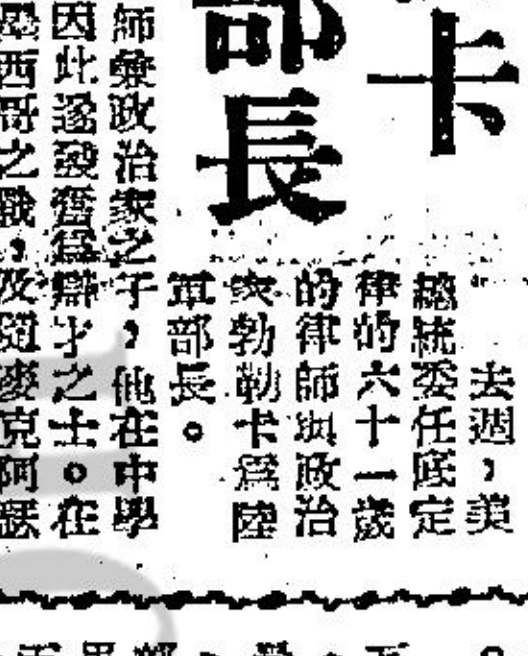 卡
部長
去週，美
總統委任底定
律的六十一歲
的律師與政治
家勃勒卡爲陸
軍部長。
師兼政治家之子，他在中學
因此遂發奮爲辯才之士。在
墨西哥之戰，及隨麥克阿瑟